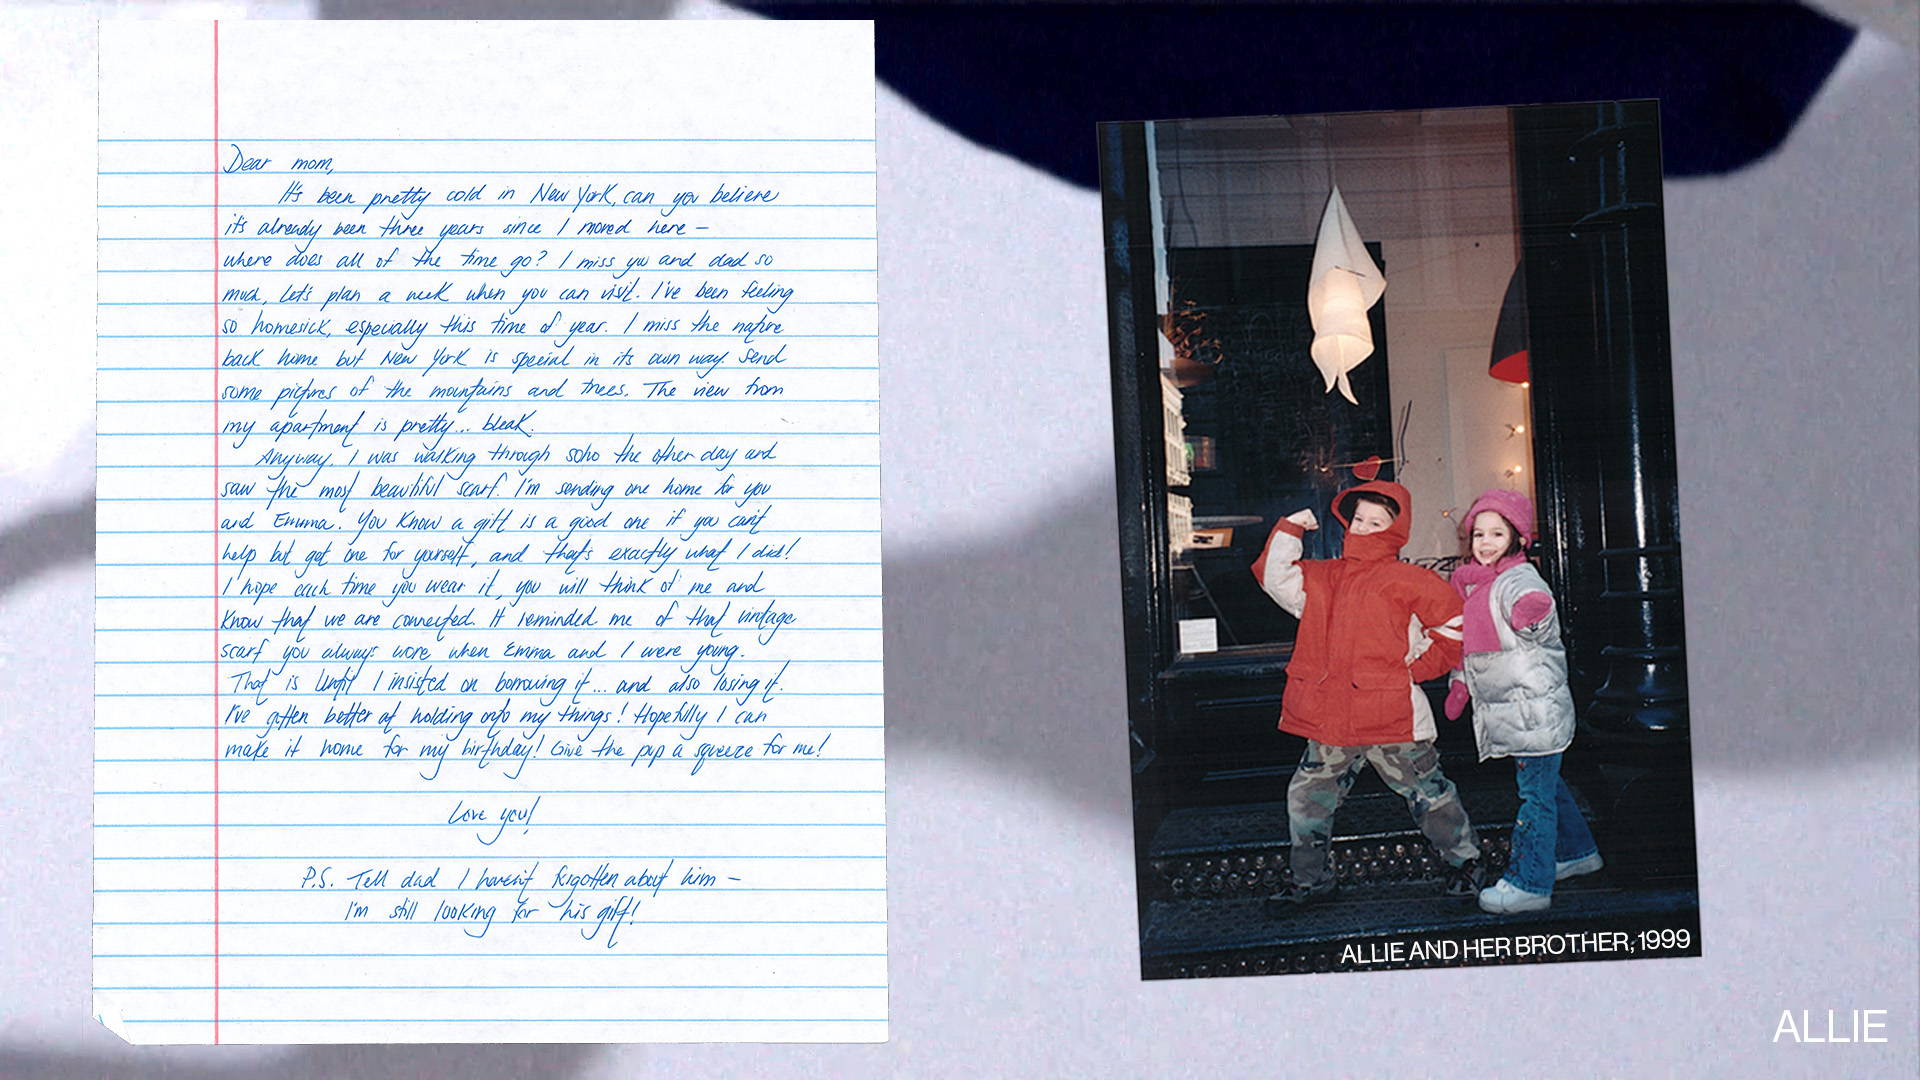 Dear mom,
It's been pretty cold in New York, can you believe
it's already been three years since I moved here –
where does all of the time go? I miss you and dad so
much, let's plan a week when you can visit. I've been feeling
so homesick, especially this time of year. I miss the nature
back home but New York is special in its own way. Send
some pictures of the mountains and trees. The view from
my apartment is pretty... bleak.
Anyway, I was walking through soho the other day and
saw the most beautiful scarf. I'm sending one home for you
and Emma. You know a gift is a good one if you can't
help but get one for yourself, and that's exactly what I did!
I hope each time you wear it, you will think of me and
know that we are connected. It reminded me of that vintage
scarf you always wore when Emma and I were young.
That is until I insisted on borrowing it... and also losing it.
I've gotten better at holding onto my things! Hopefully I can
make it home for my birthday! Give the pup a squeeze for me!
Love you!
P.S. Tell dad I haven't forgotten about him –
I'm still looking for his gift!
ALLIE AND HER BROTHER, 1999
ALLIE